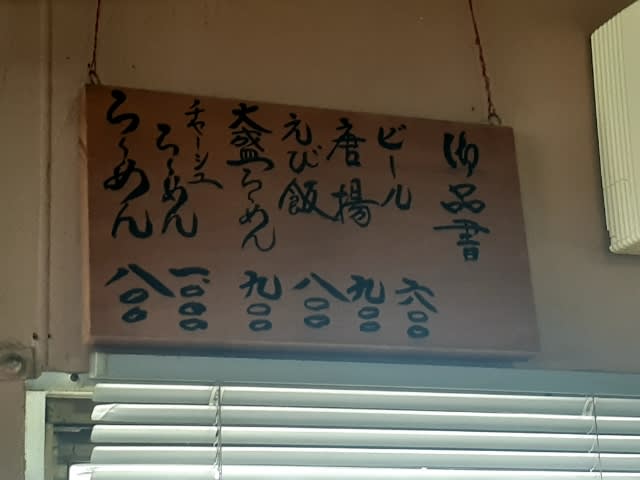 御品書
ビール 六〇〇
唐揚 九〇〇
えび飯 八〇〇
大盛らーめん 九〇〇
チャーシューらーめん 一、〇〇〇
らーめん 八〇〇